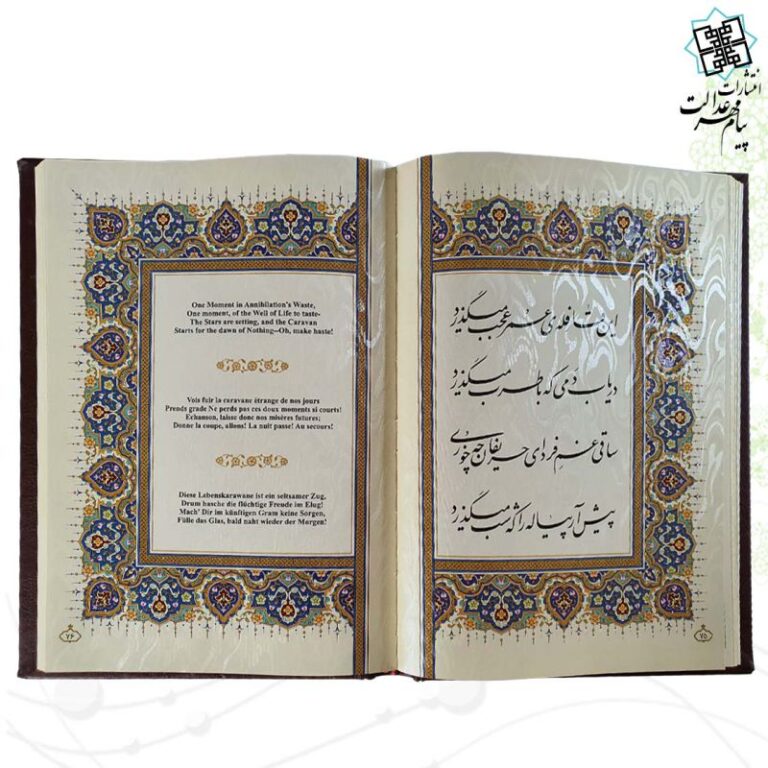 انتشارات
پیام مهر عدالت
این قافله‌ی عمر عجب میگذرد
دریاب دمی که با طرب میگذرد
ساقی غم فردای حریفان چه خوری
پیش آر پیاله را که شب میگذرد
۷۵
One Moment in Annihilation's Waste,
One moment, of the Well of Life to taste-
The Stars are setting, and the Caravan
Starts for the dawn of Nothing--Oh, make haste!
Vois fuir la caravane étrange de nos jours
Prends grade Ne perds pas ces doux moments si courts!
Echanson, laisse donc nos misères futures;
Donne la coupe, allons! La nuit passe! Au secours!
Diese Lebenskarawane ist ein seltsamer Zug,
Drum hasche die flüchtige Freude im Elug!
Mach' Dir im künftigen Gram keine Sorgen,
Fülle das Glas, bald naht wieder der Morgen!
۷۶